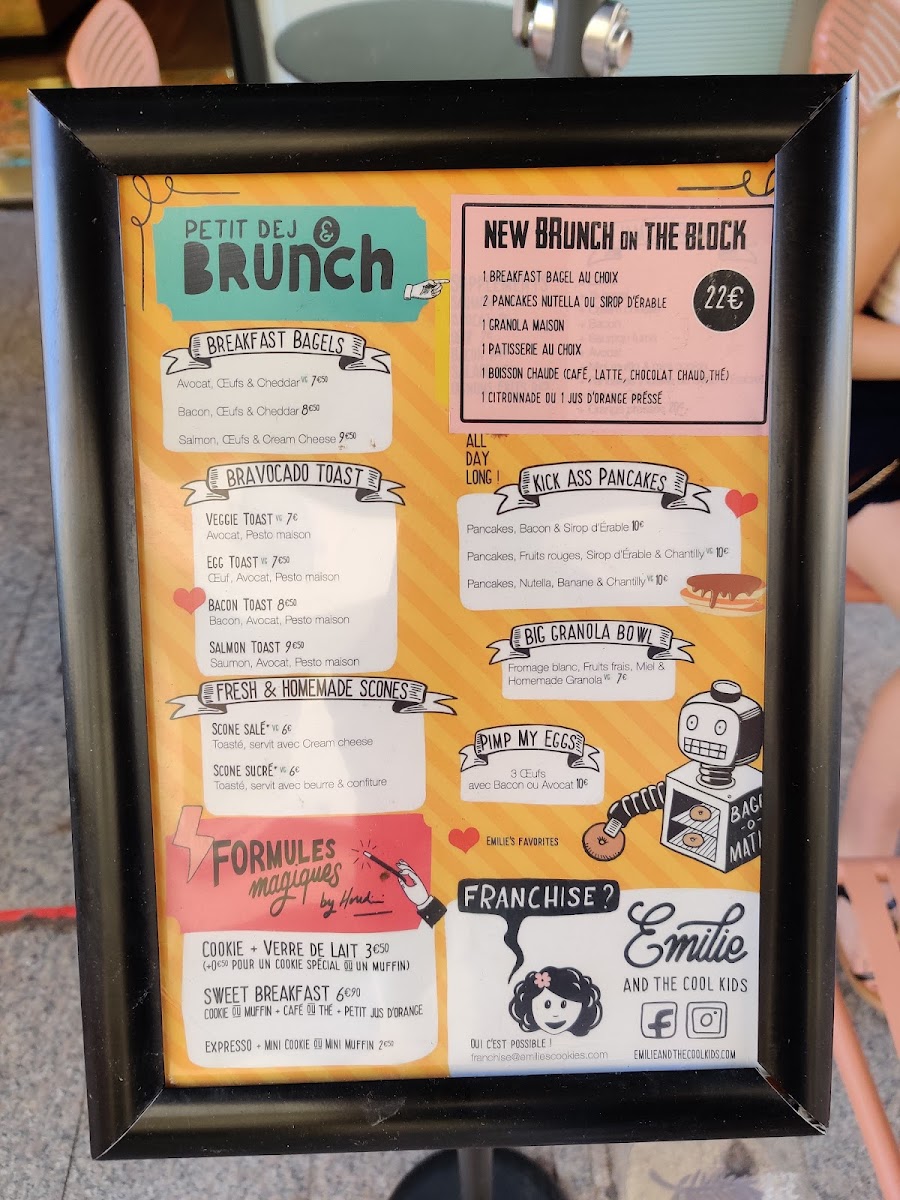 PETIT DEJ &
BRUNCH
BREAKFAST BAGELS
Avocat, Œufs & Cheddar VG 7€50
Bacon, Œufs & Cheddar 8€50
Salmon, Œufs & Cream Cheese 9€50
BRAVOCADO TOAST
VEGGIE TOAST VG 7€
Avocat, Pesto maison
EGG TOAST VG 7€50
Œuf, Avocat, Pesto maison
BACON TOAST 8€50
Bacon, Avocat, Pesto maison
SALMON TOAST 9€50
Saumon, Avocat, Pesto maison
FRESH & HOMEMADE SCONES
SCONE SALÉ* VG 6€
Toasté, servit avec Cream cheese
SCONE SUCRÉ* VG 6€
Toasté, servit avec beurre & confiture
FORMULES
magiques
by Houdini
COOKIE + VERRE DE LAIT 3€50
(+0€50 POUR UN COOKIE SPÉCIAL OU UN MUFFIN)
SWEET BREAKFAST 6€90
COOKIE OU MUFFIN + CAFÉ OU THÉ + PETIT JUS D'ORANGE
EXPRESSO + MINI COOKIE OU MINI MUFFIN 2€50
NEW BRUNCH ON THE BLOCK
22€
1 BREAKFAST BAGEL AU CHOIX
2 PANCAKES NUTELLA OU SIROP D'ÉRABLE
1 GRANOLA MAISON
1 PATISSERIE AU CHOIX
1 BOISSON CHAUDE (CAFÉ, LATTE, CHOCOLAT CHAUD, THÉ)
1 CITRONNADE OU 1 JUS D'ORANGE PRÉSSÉ
ALL
DAY
LONG !
KICK ASS PANCAKES
Pancakes, Bacon & Sirop d'Érable 10€
Pancakes, Fruits rouges, Sirop d'Érable & Chantilly VG 10€
Pancakes, Nutella, Banane & Chantilly VG 10€
BIG GRANOLA BOWL
Fromage blanc, Fruits frais, Miel &
Homemade Granola VG 7€
PIMP MY EGGS
3 Œufs
avec Bacon ou Avocat 10€
EMILIE'S FAVORITES
BAG
-O-
MATI
FRANCHISE ?
OUI C'EST POSSIBLE !
franchise@emiliescookies.com
Emilie
AND THE COOL KIDS
EMILIEANDTHECOOLKIDS.COM